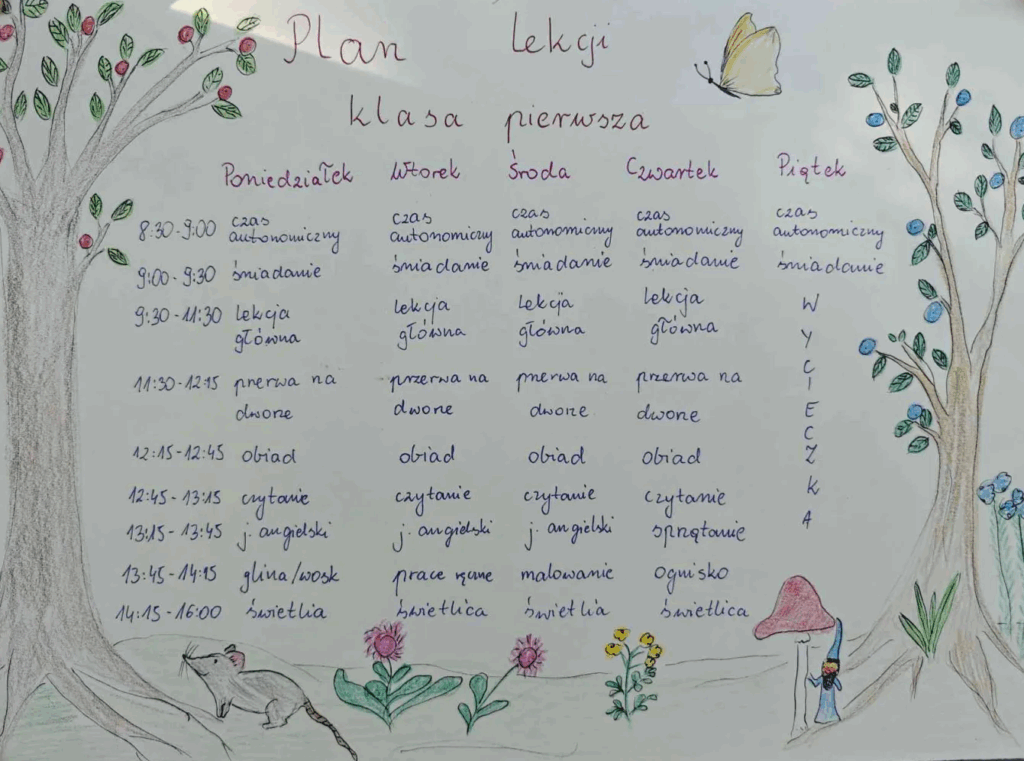 Plan lekcji
klasa pierwsza
Poniedziałek Wtorek Środa Czwartek Piątek
8:30-9:00 czas autonomiczny czas autonomiczny czas autonomiczny czas autonomiczny czas autonomiczny
9:00-9:30 śniadanie śniadanie śniadanie śniadanie śniadanie
9:30-11:30 lekcja główna lekcja główna lekcja główna lekcja główna WYCIECZKA
11:30-12:15 przerwa na dworze przerwa na dworze przerwa na dworze przerwa na dworze
12:15-12:45 obiad obiad obiad obiad
12:45-13:15 czytanie czytanie czytanie czytanie
13:15-13:45 j. angielski j. angielski j. angielski sprzątanie
13:45-14:15 glina/wosk prace ręczne malowanie ognisko
14:15-16:00 świetlia świetlica świetlia świetlica